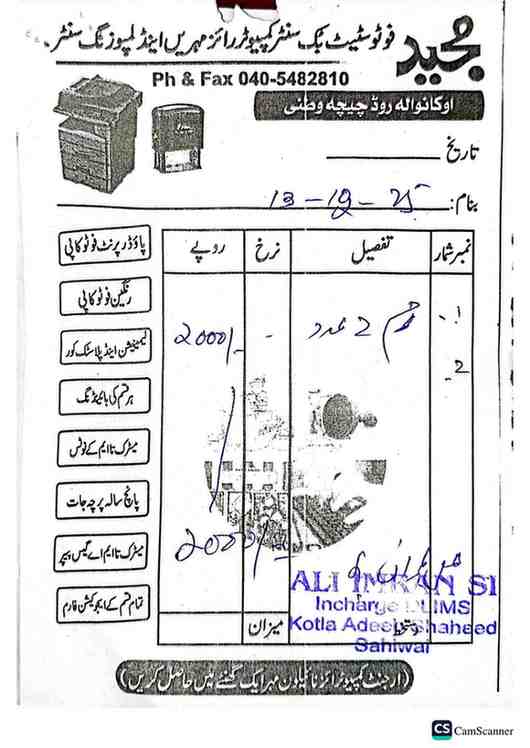 مجید
فوٹوسٹیٹ بک سنٹر کمپیوٹرائز مہریں اینڈ کمپوزنگ سنٹر
Ph & Fax 040-5482810
اوکانوالہ روڈ چیچہ وطنی
تاریخ
بنام: 13-12-25
نمبر شمار تفصیل نرخ روپے
1. 2 عدد - 2000/-
2.
2000/-
میزان
دستخط
ALI IMRAN SI
Incharge DLIMS
Kotla Adeeb Shaheed
Sahiwal
پاؤڈر پرنٹ فوٹو کاپی
رنگین فوٹو کاپی
لیمینیشن اینڈ پلاسٹک کور
ہر قسم کی بائینڈنگ
میٹرک تا ایم اے کے نوٹس
پانچ سالہ پرچہ جات
میٹرک تا ایم اے گیس پیپر
تمام قسم کے ایجوکیشن فارم
(ارجنٹ کمپیوٹرائز نائیلون مہر ایک گھنٹے میں حاصل کریں)
CS CamScanner